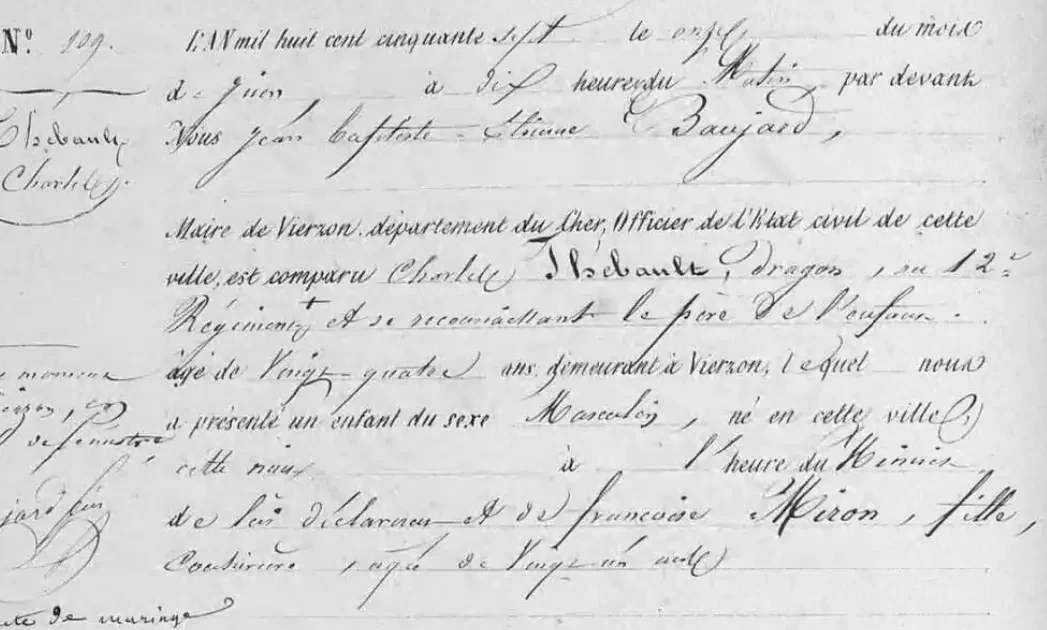 N.º 109.
Thébault
Charles.
L'AN mil huit cent cinquante sept le onze du mois
de Juin, à dix heures du Matin, par devant
Nous Jean Baptiste Etienne Baujard,
Maire de Vierzon, département du Cher, Officier de l'Etat civil de cette
ville, est comparu Charles Thébault, dragon, au 12e
Régiment + et se reconnaissant le père de l'enfant.
âgé de Vingt quatre ans, demeurant à Vierzon, lequel nous
a présenté un enfant du sexe Masculin, né en cette ville,
cette nuit à l'heure du Minuit
de lui déclarant et de françoise Miron, fille,
Couturière, agée de Vingt un ans
de mariage